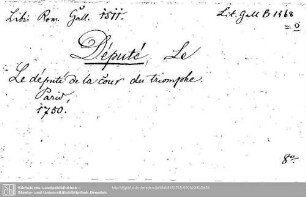 Libri Rom. Gall. 1511. Lit. Gall B 1468
= 0
Député, Le
Le député de la cour du triomphe.
Paris,
1750.
8º
Sächsische Landesbibliothek –
Staats- und Universitätsbibliothek Dresden